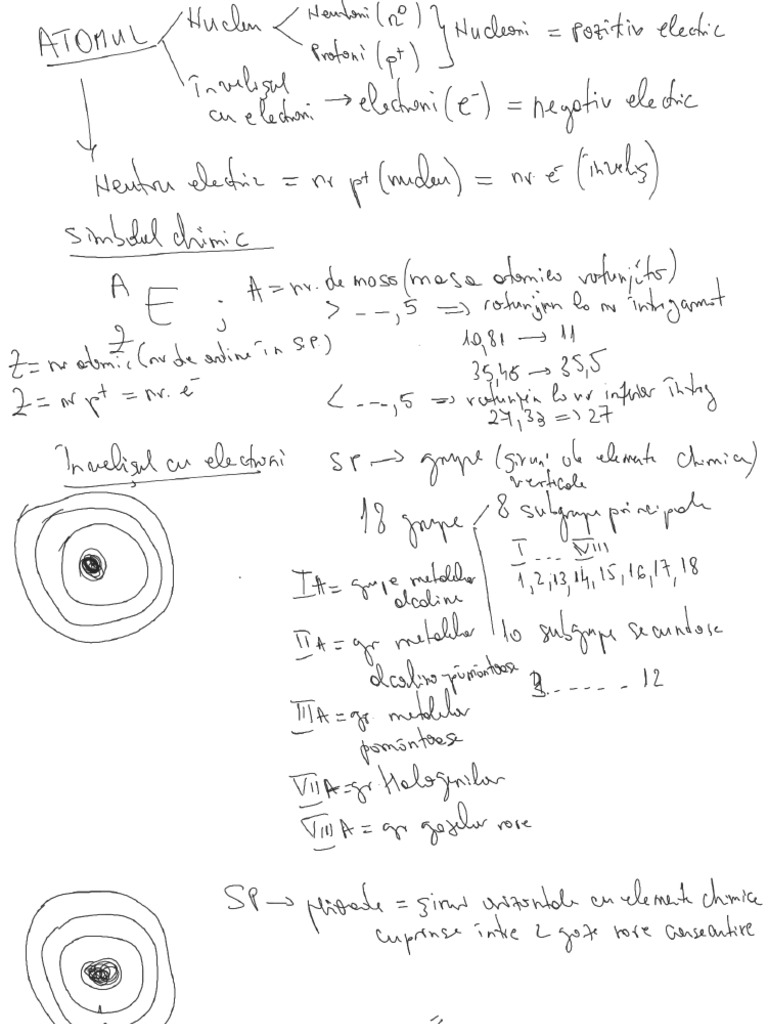 ATOMUL
Nucleu
Neutroni (n⁰)
Protoni (p⁺)
Nucleoni = pozitiv electric
învelișul
cu electroni → electroni (e⁻) = negativ electric
Neutru electric = nr p⁺ (nucleu) = nr. e⁻ (înveliș)
Simbolul chimic
A
E ; A = nr. de masă (masa atomică rotunjită)
Z
> - - -, 5 => rotunjim la nr întreg
10,81 → 11
Z = nr atomic (nr de ordine în S.P.)
35,45 → 35,5
Z = nr p⁺ = nr. e⁻
< - - -, 5 => rotunjim la nr inferior întreg
27,33 => 27
Învelișul cu electroni
SP → grupe (șiruri de elemente chimice)
verticale
18 grupe
8 subgrupe principale
I ... VIII
1, 2, 13, 14, 15, 16, 17, 18
I A = grupa metalelor
alcaline
10 subgrupe secundare
3 - - - - - - 12
II A = gr metalelor
alcalino-pământoase
III A = gr. metalelor
pământoase
VII A = gr. Halogenilor
VIII A = gr gazelor rare
SP → perioade = șiruri orizontale cu elemente chimice
cuprinse între 2 gaze rare consecutive
=